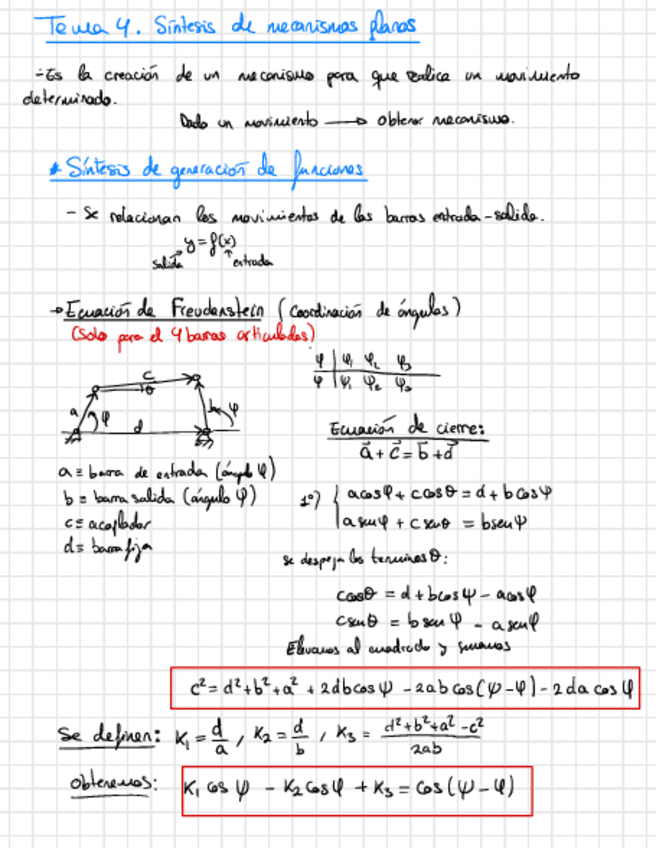 Tema 4. Síntesis de mecanismos planos
- Es la creación de un mecanismo para que realice un movimiento
determinado.
Dado un movimiento → obtener mecanismo.
* Síntesis de generación de funciones
- Se relacionan los movimientos de las barras entrada-salida.
y = f(x)
salida entrada
→ Ecuación de Freudenstein (Coordinación de ángulos)
(Solo para el 4 barras articuladas)
φ | φ₁ φ₂ φ₃
ψ | ψ₁ ψ₂ ψ₃
c
θ
a φ d b ψ
Ecuación de cierre:
a⃗ + c⃗ = b⃗ + d⃗
a ≡ barra de entrada (ángulo φ)
b ≡ barra salida (ángulo ψ)
c ≡ acoplador
d ≡ barra fija
1º) { a cos φ + c cos θ = d + b cos ψ
a sen φ + c sen θ = b sen ψ
se despeja los terminos θ:
c cos θ = d + b cos ψ - a cos φ
c sen θ = b sen ψ - a sen φ
Elevamos al cuadrado y sumamos
c² = d² + b² + a² + 2db cos ψ - 2ab cos(ψ-φ) - 2da cos φ
Se definen: K₁ = d/a , K₂ = d/b , K₃ = (d²+b²+a²-c²)/2ab
obtenemos: K₁ cos ψ - K₂ cos φ + K₃ = cos(ψ-φ)